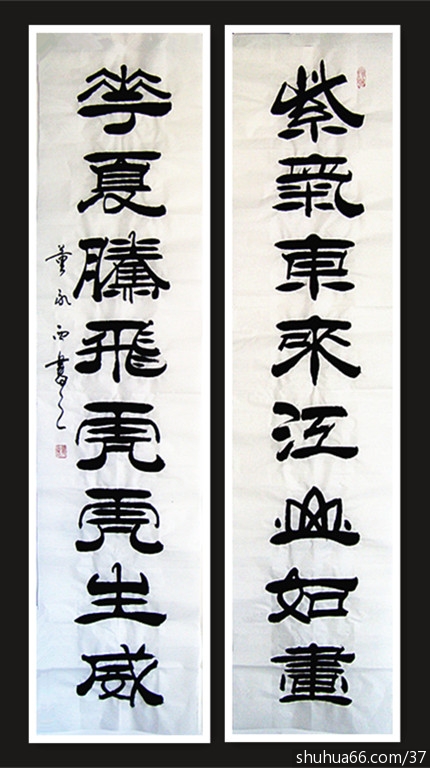 紫氣東來江山如畫
華夏騰飛虎虎生威
董永西書之
shuhua66.com/37